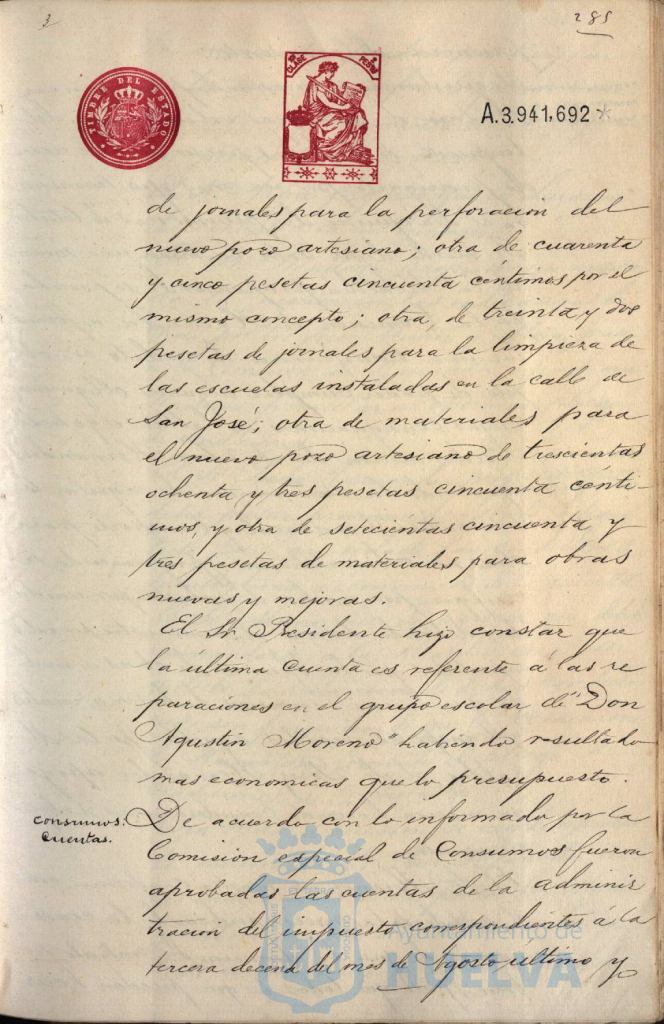 3
285
TIMBRE DEL ESTADO
CLASE
PESETAS
A.3.941,692*
de jornales para la perforación del
nuevo pozo artesiano; otra de cuarenta
y cinco pesetas cincuenta céntimos por el
mismo concepto; otra, de treinta y dos
pesetas de jornales para la limpieza de
las escuelas instaladas en la calle de
San José; otra de materiales para
el nuevo pozo artesiano de trescientas
ochenta y tres pesetas cincuenta cénti-
mos, y otra de setecientas cincuenta y
tres pesetas de materiales para obras
nuevas y mejoras.
El Sr. Presidente hizo constar que
la última cuenta es referente á las re
paraciones en el grupo escolar de "Don
Agustín Moreno" habiendo resultado
mas economicas que lo presupuesto.
Consumos.
Cuentas.
De acuerdo con lo informado por la
Comisión especial de Consumos fueron
aprobadas las cuentas de la adminis
tración del impuesto correspondientes á la
tercera decena del mes de Agosto último y
Ayuntamiento de
HUELVA